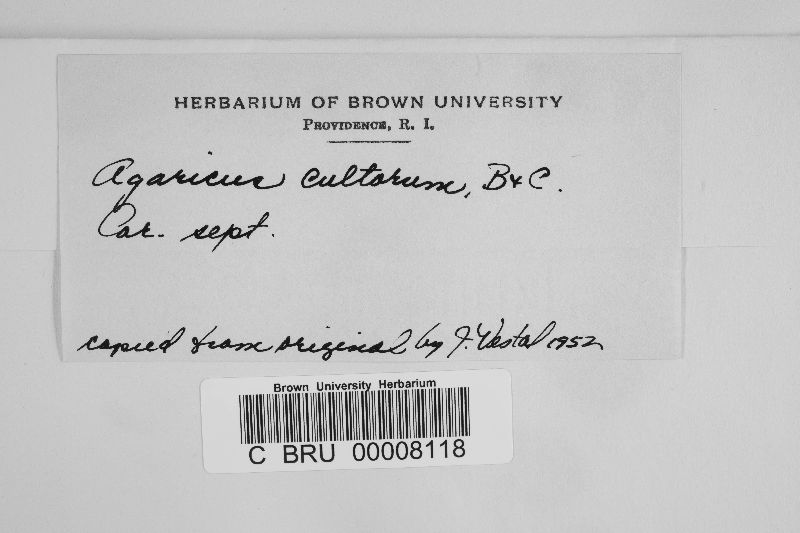 HERBARIUM OF BROWN UNIVERSITY
PROVIDENCE, R. I.
Agaricus cultorum, B & C.
Car. sept.
copied from original by J. Vestal 1952
Brown University Herbarium
C BRU 00008118